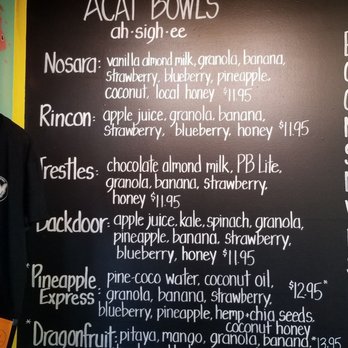 ACAI BOWLS
ah·sigh·ee
Nosara: vanilla almond milk, granola, banana,
strawberry, blueberry, pineapple,
coconut, local honey $11.95
Rincon: apple juice, granola, banana,
strawberry, blueberry, honey $11.95
Trestles: chocolate almond milk, PB Lite,
granola, banana, strawberry,
honey $11.95
Backdoor: apple juice, kale, spinach, granola,
pineapple, banana, strawberry,
blueberry, honey $11.95
*Pineapple Express: pine-coco water, coconut oil, $12.95*
granola, banana, strawberry,
blueberry, pineapple, hemp+chia seeds,
coconut honey
*Dragonfruit: pitaya, mango, granola, banana, *13.95